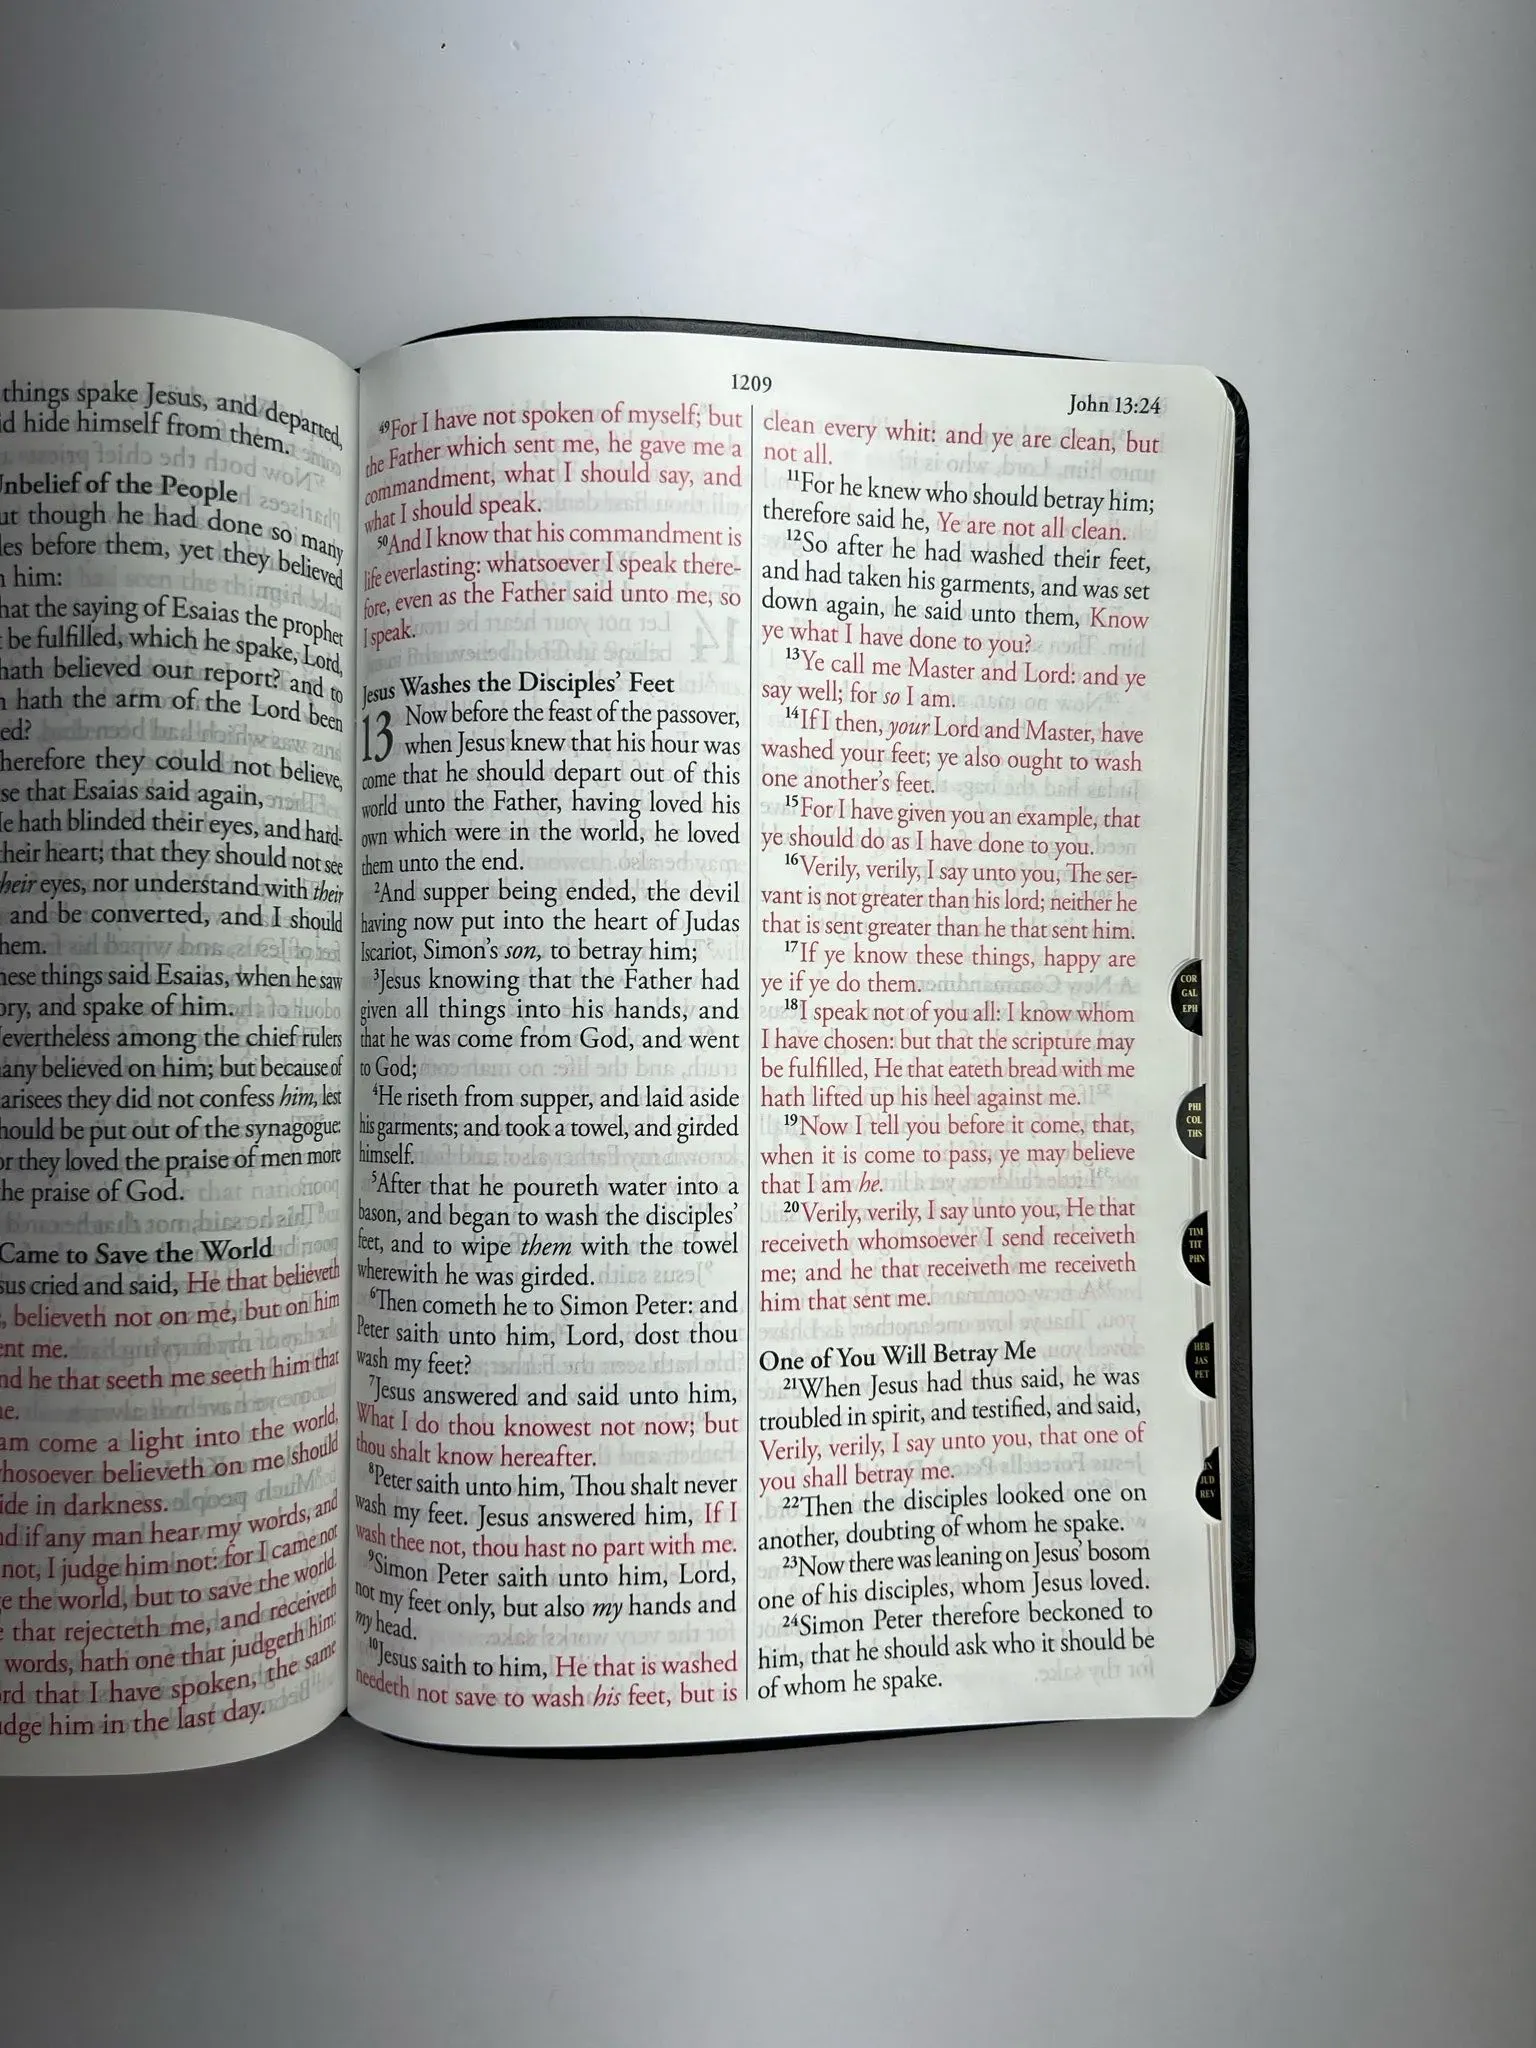 things spake Jesus, and departed,
hide himself from them.
of the People
though he had done so many
before them, yet they believed
him:
the saying of Esaias the prophet
be fulfilled, which he spake, Lord,
hath believed our report? and to
hath the arm of the Lord been
they could not believe,
that Esaias said again,
hath blinded their eyes, and hard-
heart; that they should not see
eyes, nor understand with their
and be converted, and I should
things said Esaias, when he saw
and spake of him.
among the chief rulers
believed on him; but because of
they did not confess him, lest
be put out of the synagogue:
they loved the praise of men more
praise of God.
Came to Save the World
cried and said, He that believeth
believeth not on me, but on him
me.
he that seeth me seeth him that
come a light into the world,
believeth on me should
in darkness.
if any man hear my words, and
not, I judge him not: for I came not
the world, but to save the world.
that rejecteth me, and receiveth
words, hath one that judgeth him:
that I have spoken, the same
him in the last day.
1209
John 13:24
49For I have not spoken of myself; but
the Father which sent me, he gave me a
commandment, what I should say, and
what I should speak.
50And I know that his commandment is
life everlasting: whatsoever I speak there-
fore, even as the Father said unto me, so
I speak.
Jesus Washes the Disciples' Feet
13 Now before the feast of the passover,
when Jesus knew that his hour was
come that he should depart out of this
world unto the Father, having loved his
own which were in the world, he loved
them unto the end.
2And supper being ended, the devil
having now put into the heart of Judas
Iscariot, Simon's son, to betray him;
3Jesus knowing that the Father had
given all things into his hands, and
that he was come from God, and went
to God;
4He riseth from supper, and laid aside
his garments; and took a towel, and girded
himself.
5After that he poureth water into a
bason, and began to wash the disciples'
feet, and to wipe them with the towel
wherewith he was girded.
6Then cometh he to Simon Peter: and
Peter saith unto him, Lord, dost thou
wash my feet?
7Jesus answered and said unto him,
What I do thou knowest not now; but
thou shalt know hereafter.
8Peter saith unto him, Thou shalt never
wash my feet. Jesus answered him, If I
wash thee not, thou hast no part with me.
9Simon Peter saith unto him, Lord,
not my feet only, but also my hands and
my head.
10Jesus saith to him, He that is washed
needeth not save to wash his feet, but is
clean every whit: and ye are clean, but
not all.
11For he knew who should betray him;
therefore said he, Ye are not all clean.
12So after he had washed their feet,
and had taken his garments, and was set
down again, he said unto them, Know
ye what I have done to you?
13Ye call me Master and Lord: and ye
say well; for so I am.
14If I then, your Lord and Master, have
washed your feet; ye also ought to wash
one another's feet.
15For I have given you an example, that
ye should do as I have done to you.
16Verily, verily, I say unto you, The ser-
vant is not greater than his lord; neither he
that is sent greater than he that sent him.
17If ye know these things, happy are
ye if ye do them.
18I speak not of you all: I know whom
I have chosen: but that the scripture may
be fulfilled, He that eateth bread with me
hath lifted up his heel against me.
19Now I tell you before it come, that,
when it is come to pass, ye may believe
that I am he.
20Verily, verily, I say unto you, He that
receiveth whomsoever I send receiveth
me; and he that receiveth me receiveth
him that sent me.
One of You Will Betray Me
21When Jesus had thus said, he was
troubled in spirit, and testified, and said,
Verily, verily, I say unto you, that one of
you shall betray me.
22Then the disciples looked one on
another, doubting of whom he spake.
23Now there was leaning on Jesus' bosom
one of his disciples, whom Jesus loved.
24Simon Peter therefore beckoned to
him, that he should ask who it should be
of whom he spake.
COR
GAL
EPH
PHI
COL
THS
TIM
TIT
PHN
HEB
JAS
PET
JUD
REV